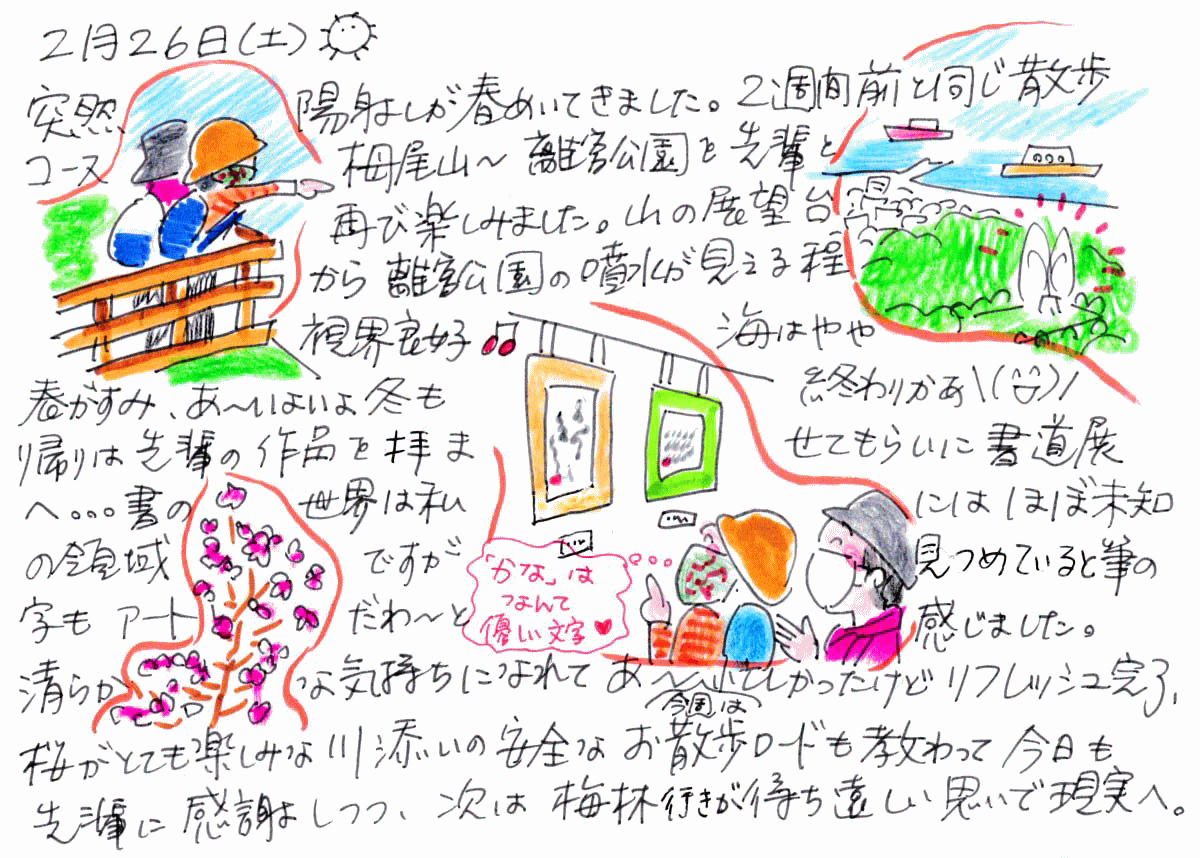 2月26日(土)
突然 陽射しが春めいてきました。2週間前と同じ散歩
コース 栂尾山〜離宮公園を先輩と
再び楽しみました。山の展望台
から離宮公園の噴水が見える程
視界良好♪ 海はやや
春がすみ、あ〜いよいよ冬も 終わりかぁ\(^^)/
帰りは先輩の作品を拝ま せてもらいに書道展
へ...書の 世界は私 には ほぼ未知
の領域 ですが 見つめていると筆の
「かな」は
なんて
優しい文字♥
字もアート だわ〜と 感じました。
清らか な気持ちになれて あ〜忙しかったけどリフレッシュ完了、
今週は
桜がとても楽しみな川添いの安全なお散歩ロードも教わって今日も
先輩に感謝しつつ、次は梅林行きが待ち遠しい思いで現実へ。